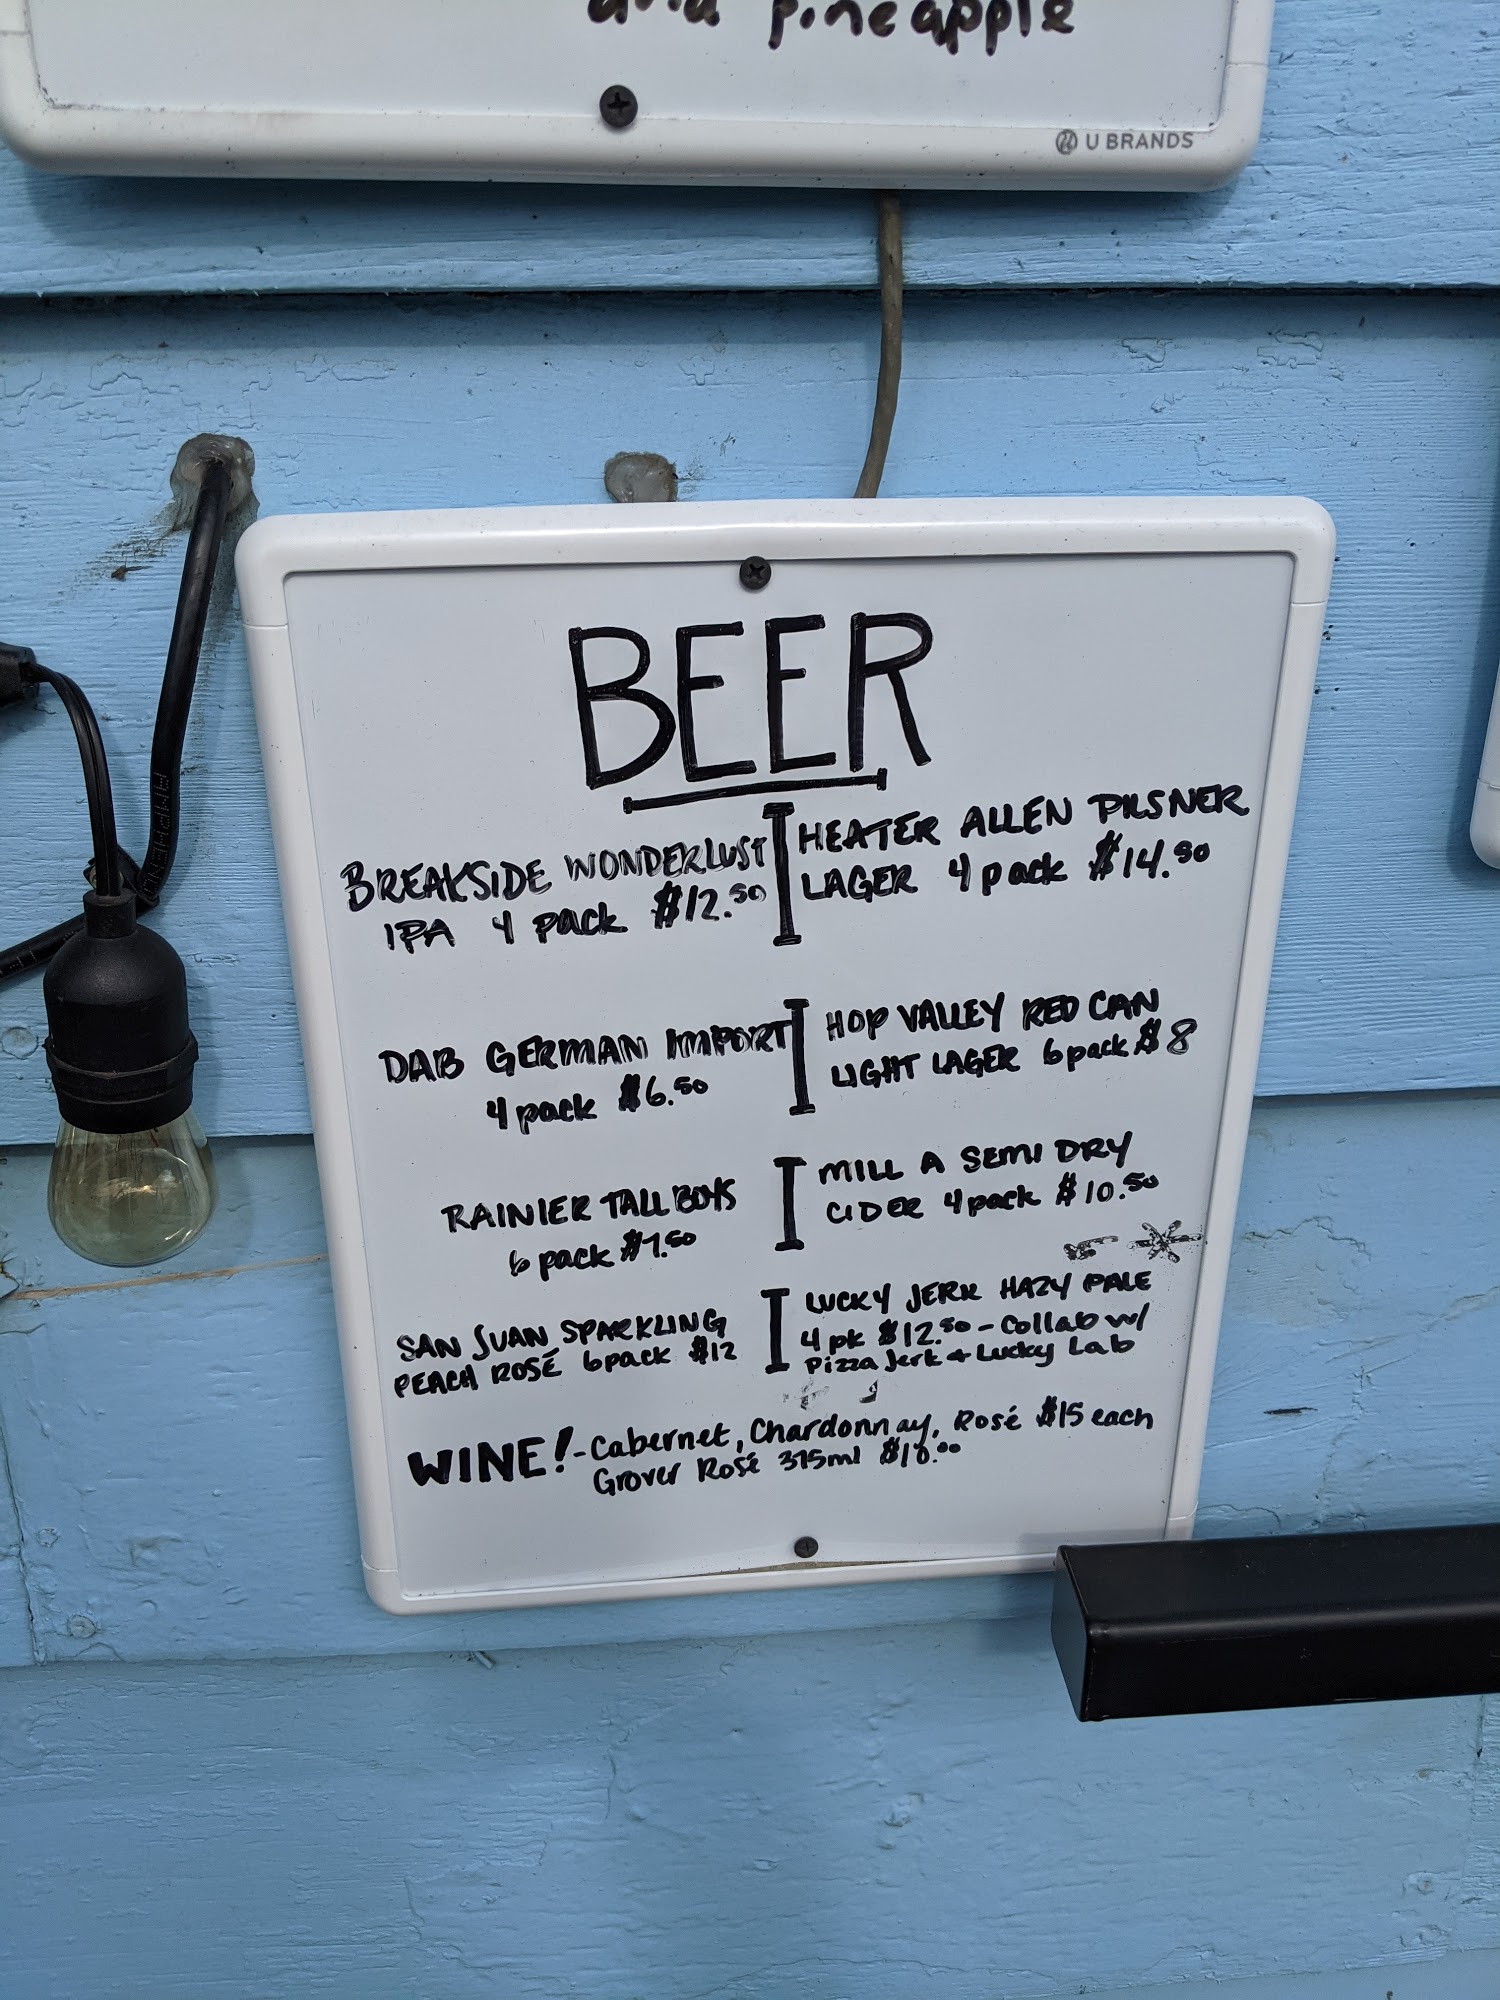 and pineapple
U BRANDS
BEER
BREAKSIDE WONDERLUST
IPA 4 pack $12.50
HEATER ALLEN PILSNER
LAGER 4 pack $14.50
DAB GERMAN IMPORT
4 pack $6.50
HOP VALLEY RED CAN
LIGHT LAGER 6 pack $8
RAINIER TALL BOYS
6 pack $7.50
MILL A SEMI DRY
CIDER 4 pack $10.50
SAN JUAN SPARKLING
PEACH ROSÉ 6 pack $12
LUCKY JERK HAZY PALE
4 pk $12.50 - Collab w/
Pizza Jerk + Lucky Lab
WINE! - Cabernet, Chardonnay, Rosé $15 each
Grover Rosé 375ml $10.00